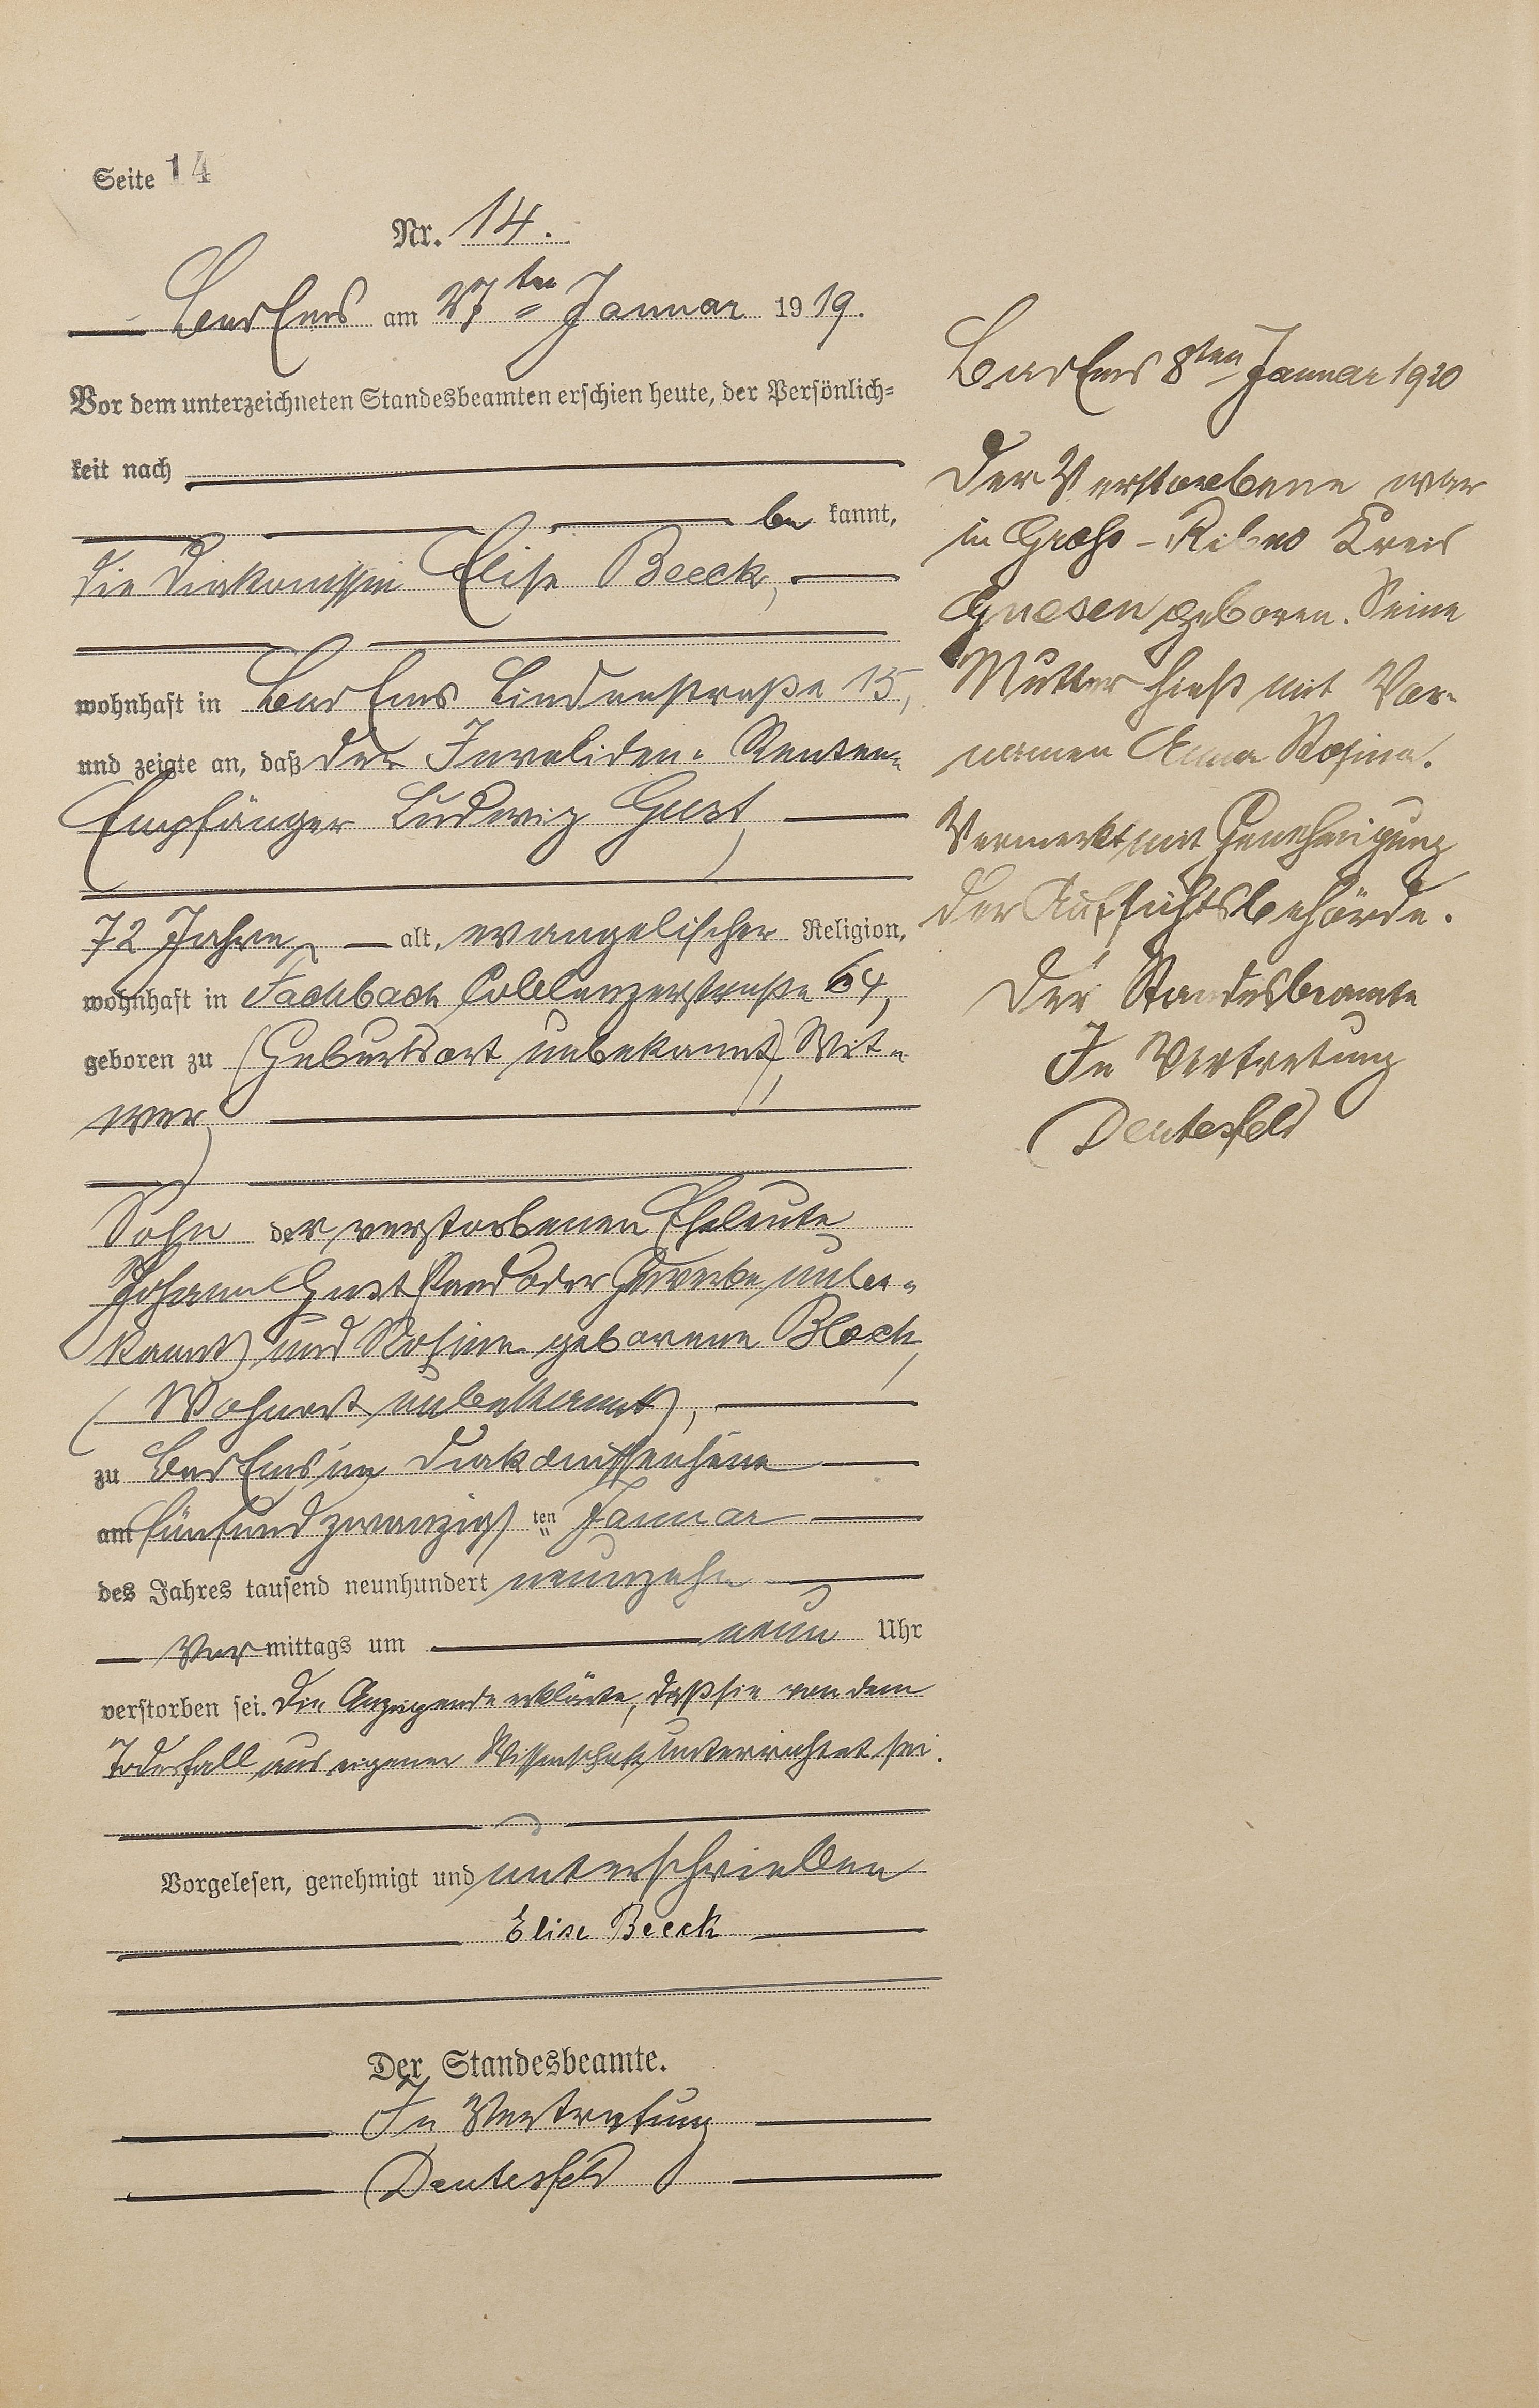 Seite 14
Nr. 14.
Bad Ems am 27ten Januar 1919.
Vor dem unterzeichneten Standesbeamten erschien heute, der Persönlich=
keit nach
be kannt,
die Diakonissin Elise Beeck,
wohnhaft in Bad Ems Lindenstraße 15,
und zeigte an, daß der Invaliden- Renten-
Empfänger Ludwig Gust,
72 Jahre, alt, evangelischer Religion,
wohnhaft in Fachbach Coblenzerstraße 64,
geboren zu (Geburtsort unbekannt), Wit-
wer,
Sohn der verstorbenen Eheleute
Johann Gust (Stand oder Gewerbe unbe-
kannt) und Rosine geborene Block,
(Wohnort unbekannt),
zu Bad Ems im Diakonissenheim
am fünfundzwanzig ten Januar
des Jahres tausend neunhundert neunzehn
Vor mittags um neun Uhr
verstorben sei. Die Anzeigende erklärte, daß sie von dem
Todesfall aus eigener Wissenschaft unterrichtet sei.
Vorgelesen, genehmigt und unterschrieben
Elise Beeck
Der Standesbeamte.
In Vertretung
Deutesfeld
Bad Ems 8ten Januar 1920
Der Verstorbene war
in Groß-Ribno Kreis
Gnesen geboren. Seine
Mutter hieß mit Vor-
namen Anna Rosina.
Vermerkt mit Genehmigung
der Aufsichtsbehörde.
Der Standesbeamte
In Vertretung
Deutesfeld